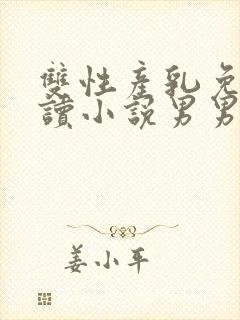 雙性產乳免
讀小說男男
姜小平